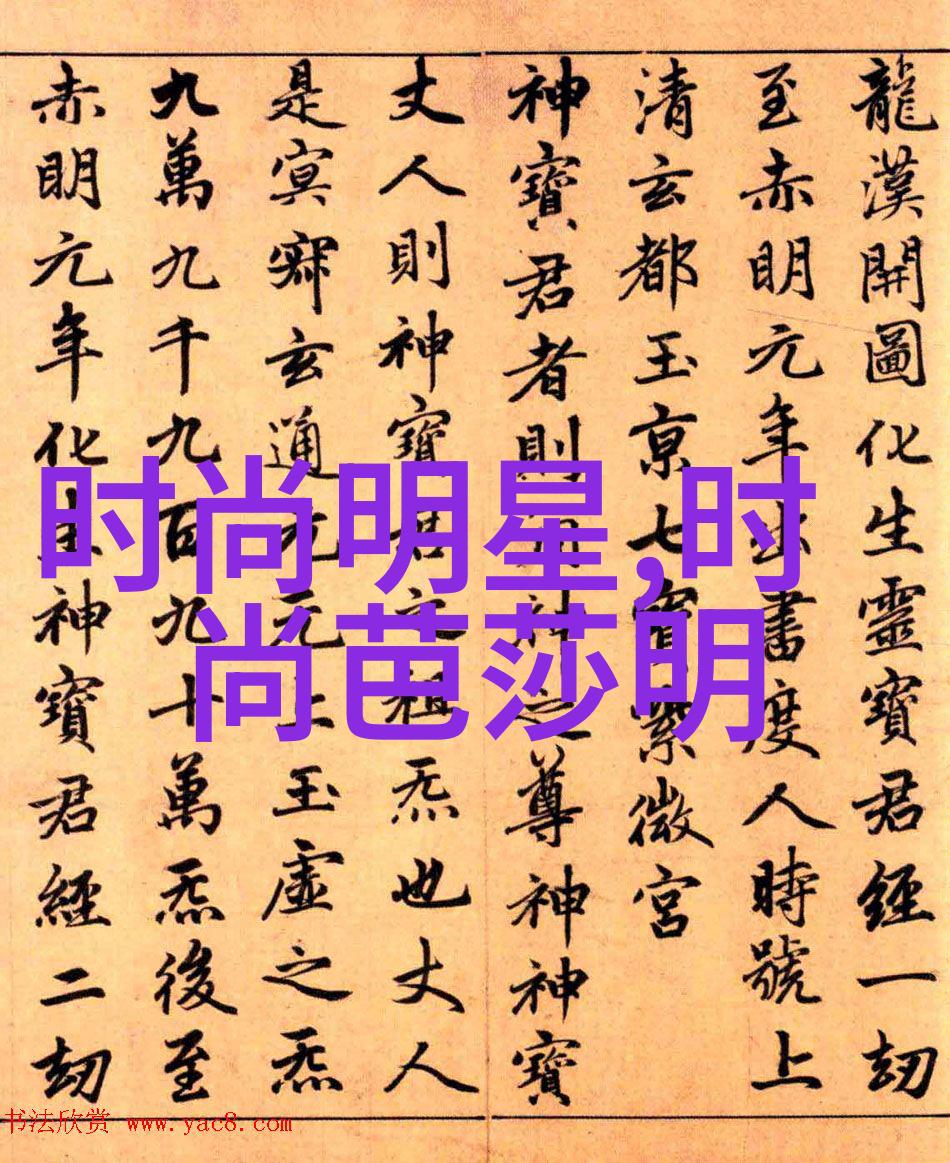 龍漢開圖化生靈寶君經一劫
至赤明元年出書度人時號上
清玄都玉京七寶紫微宮
神寶君者則洞神之尊神神寶
丈人則神寶君之祖炁也丈人
是寂玄通无元上玉虛之炁
九萬九千九百九十萬炁後至
赤明元年化生神寶君經二劫
时尚明星,时
尚芭莎明
书法欣赏 www.yac8.com